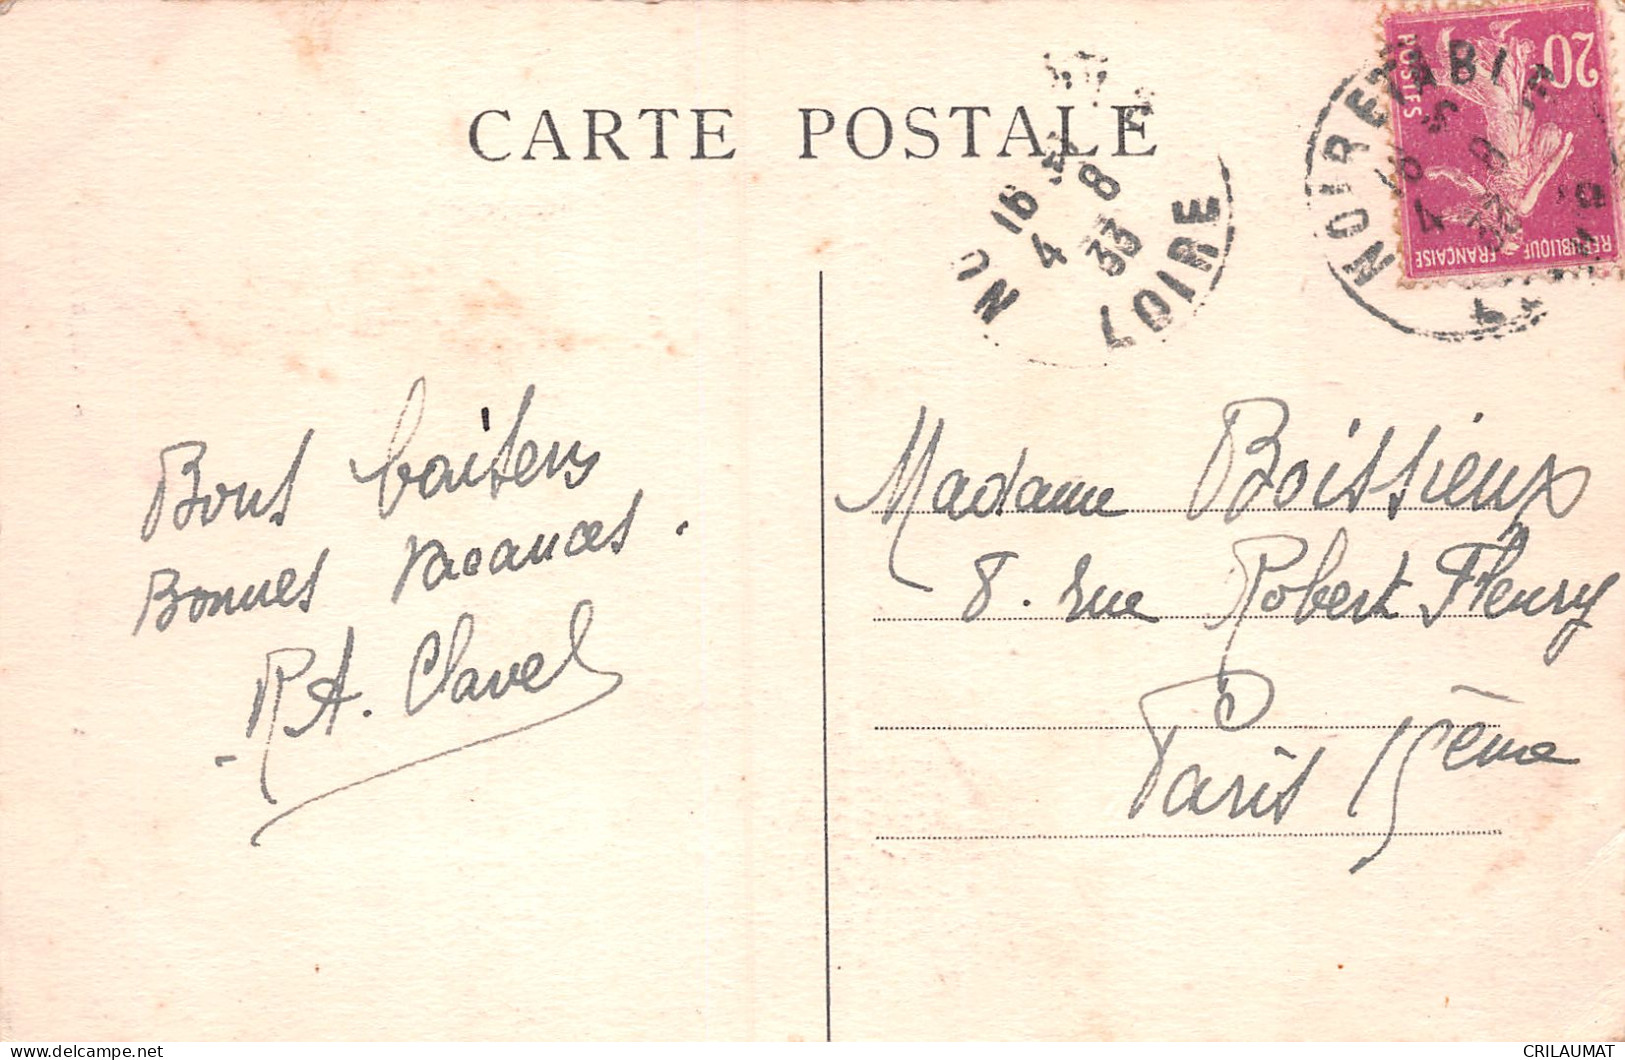 CARTE POSTALE
NOIRETABLE
16
4 8
33
LOIRE
NO
4 8
33
20
POSTES
REPUBLIQUE FRANÇAISE
Bons baisers
Bonnes vacances.
R.A. Clavel
Madame Boissieux
8. rue Robert Fleury
Paris 15ème
www.delcampe.net
CRILAUMAT